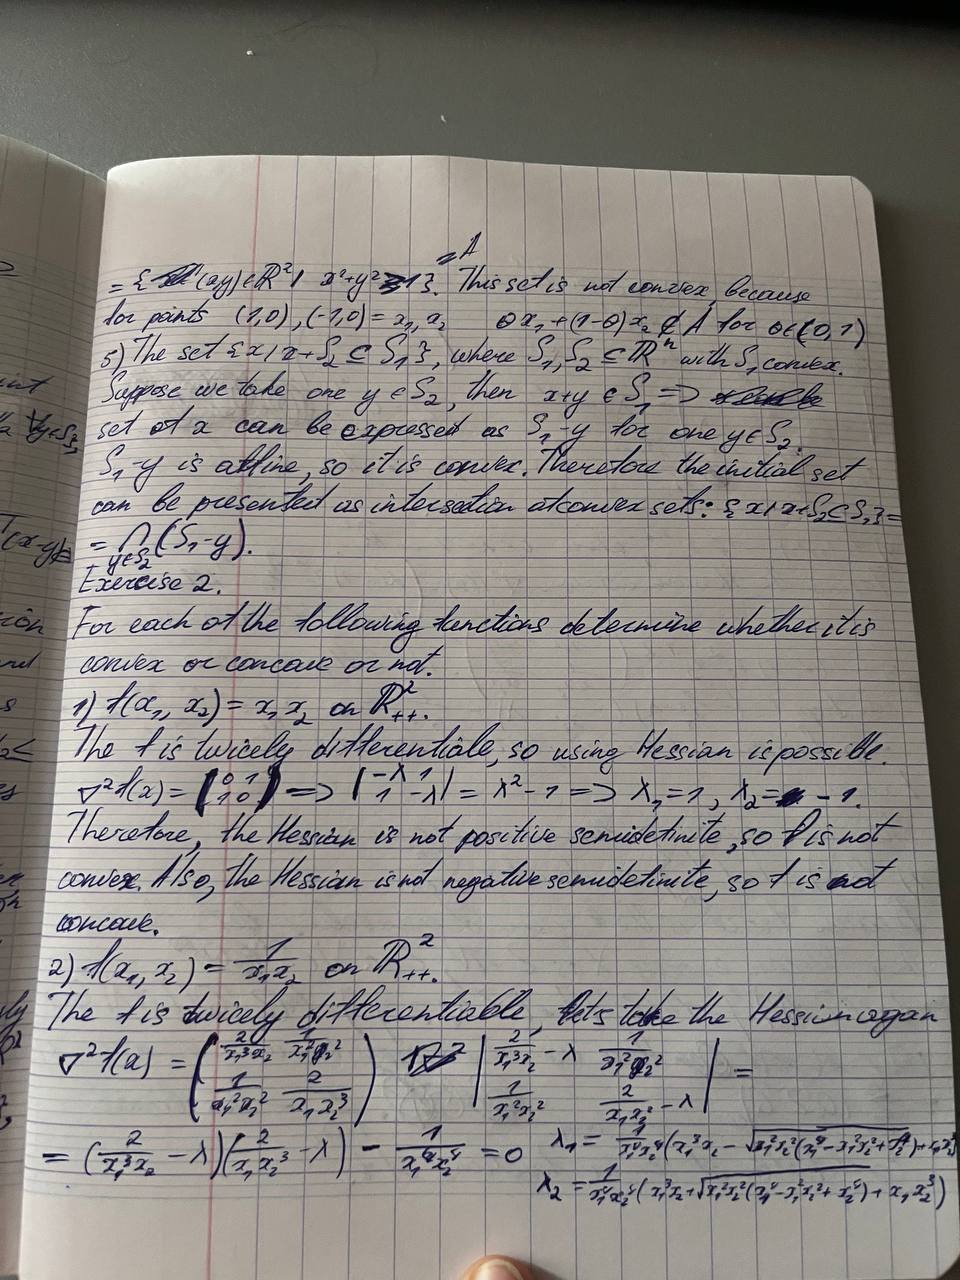 = A
= { (x,y) ∈ ℝ² | x²+y² ≥ 1}. This set is not convex, because
for points (1,0), (-1,0) = x₁, x₂ θx₁+(1-θ)x₂ ∉ A for θ∈(0,1)
5) The set {x | x+S₂ ⊆ S₁}, where S₁, S₂ ⊆ ℝⁿ with S₁ convex.
Suppose we take one y ∈ S₂, then x+y ∈ S₁ =>
set of x can be expressed as S₁-y for one y∈S₂.
S₁-y is affine, so it is convex. Therefore the initial set
can be presented as intersection of convex sets: {x | x+S₂⊆S₁} =
= ⋂ (S₁-y).
y∈S₂
Exercise 2.
For each of the following functions determine whether it is
convex or concave or not.
1) f(x₁, x₂) = x₁x₂ on ℝ²₊₊.
The f is twicely differentiale, so using Hessian is possible.
∇²f(x) = (0 1; 1 0) => |-λ 1; 1 -λ| = λ²-1 => λ₁=1, λ₂= -1.
Therefore, the Hessian is not positive semidefinite, so f is not
convex. Also, the Hessian is not negative semidefinite, so f is not
concave.
2) f(x₁, x₂) = 1/(x₁x₂) on ℝ²₊₊.
The f is twicely differentiable, lets take the Hessian again
∇²f(x) = (2/(x₁³x₂) 1/(x₁²x₂²); 1/(x₁²x₂²) 2/(x₁x₂³)) |2/(x₁³x₂) - λ 1/(x₁²x₂²); 1/(x₁²x₂²) 2/(x₁x₂³) - λ| =
= (2/(x₁³x₂) - λ)(2/(x₁x₂³) - λ) - 1/(x₁⁴x₂⁴) = 0 λ₁ = 1/(x₁⁴x₂⁴) (x₁³x₂ - √(x₁²x₂²(x₁⁴-x₁²x₂²+x₂⁴)) + x₁x₂³)
λ₂ = 1/(x₁⁴x₂⁴) (x₁³x₂ + √(x₁²x₂²(x₁⁴-x₁²x₂²+x₂⁴)) + x₁x₂³)